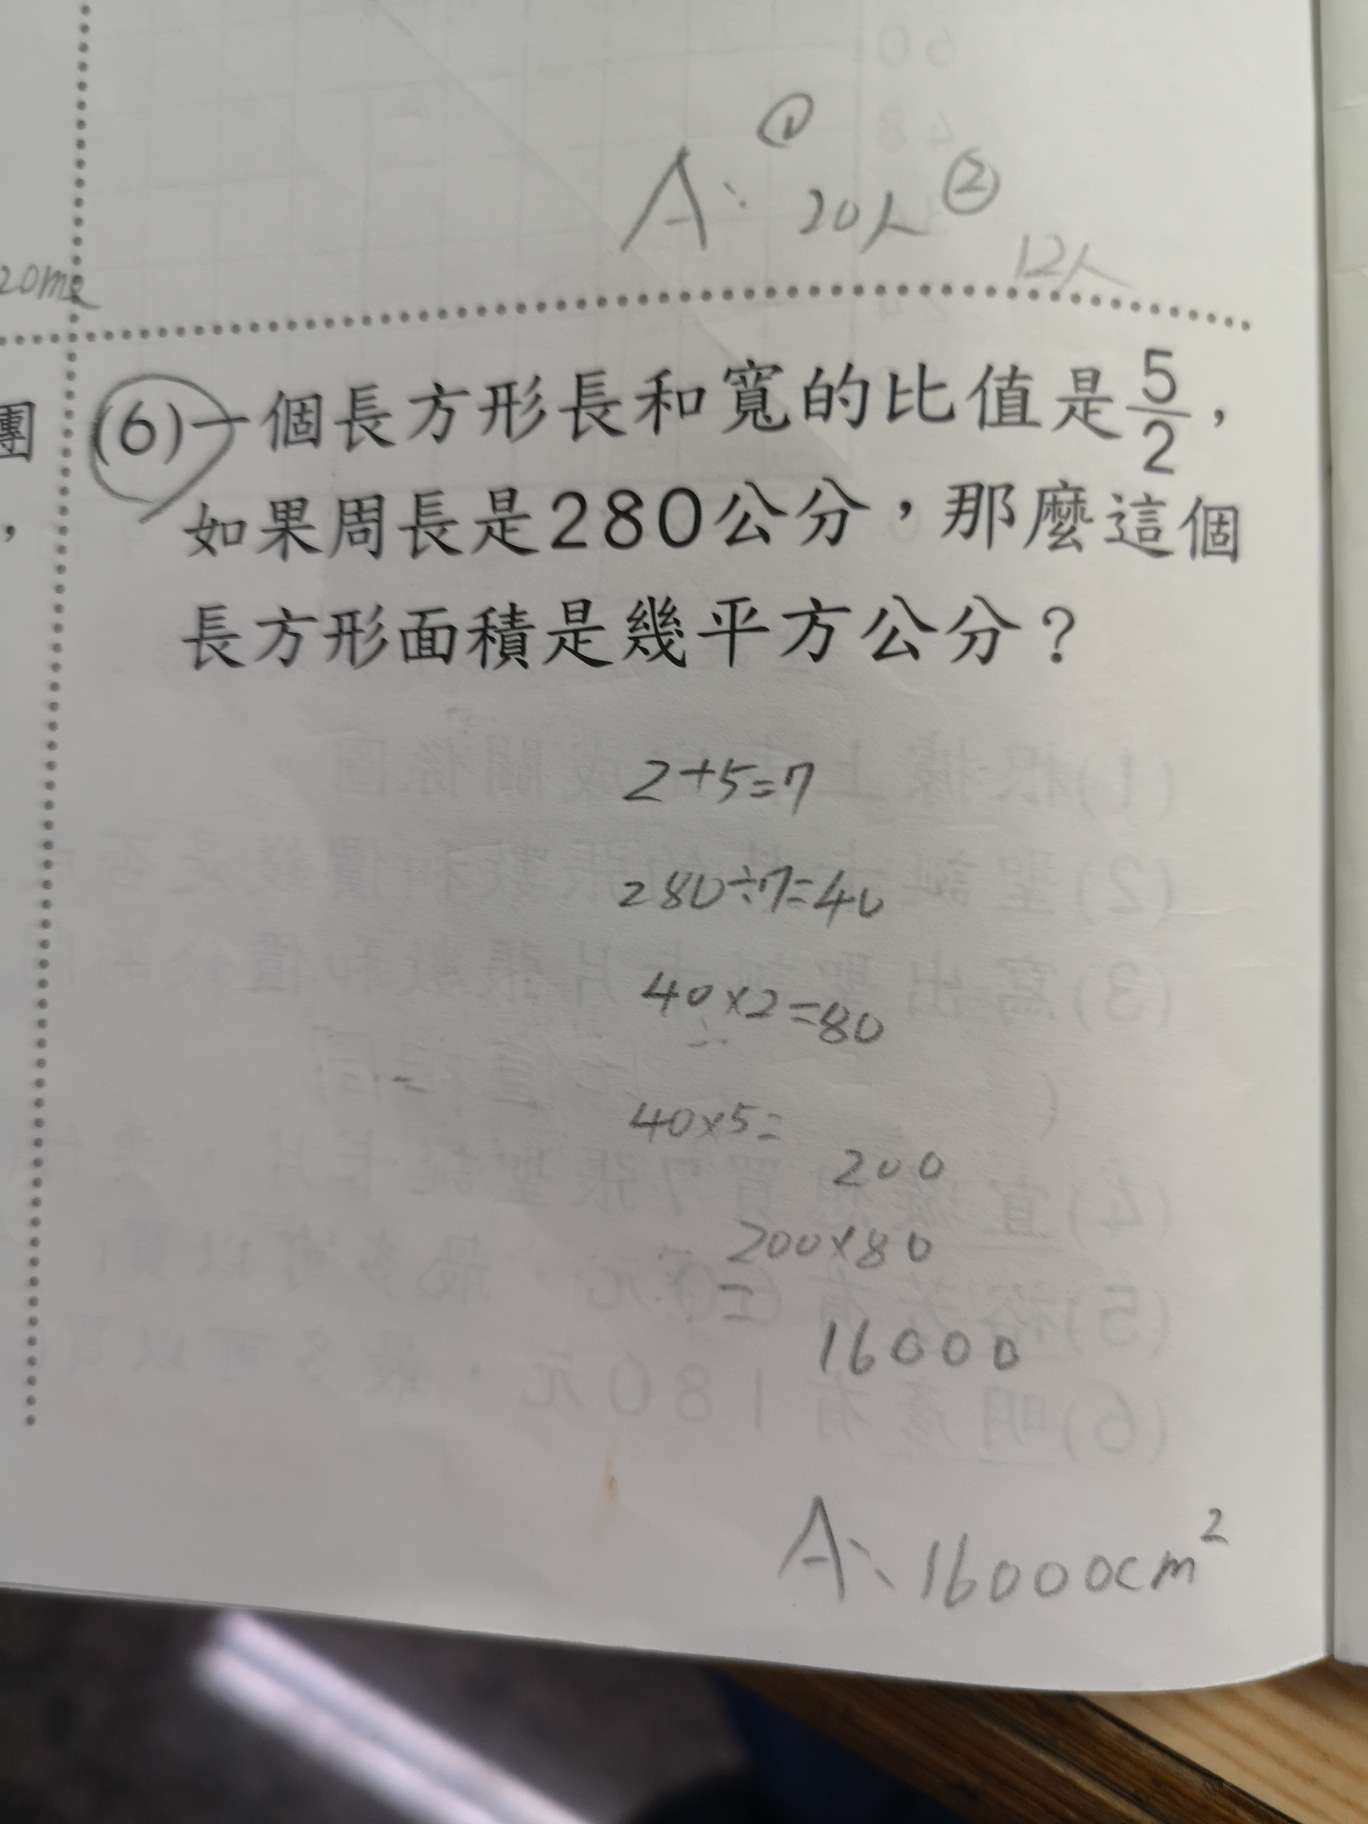 A: ① 20人 ② 12人
20ml
團
(6)一個長方形長和寬的比值是5/2，
，
如果周長是280公分，那麼這個
長方形面積是幾平方公分？
2+5=7
280÷7=40
40×2=80
40×5=
200
200×80
=
16000
A: 16000cm²